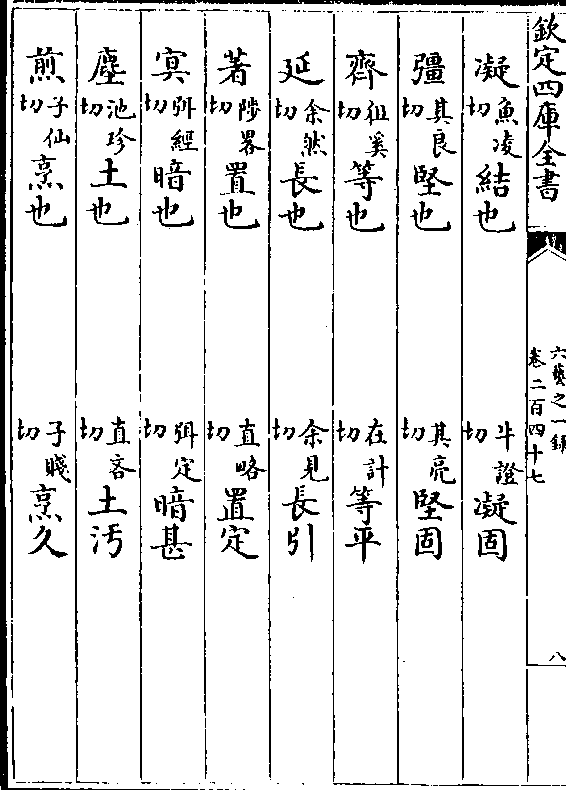 欽定四庫全書
六藝之一錄
卷二百四十七
八
凝魚凌切結也 牛證切凝固
彊其良切堅也 其亮切堅固
齊徂奚切等也 在計切等平
延余然切長也 余見切長引
著陟畧切置也 直略切置定
㝠弭經切暗也 弭定切暗甚
塵池珍切土也 直吝切土汚
煎子仙切烹也 子賤切烹久